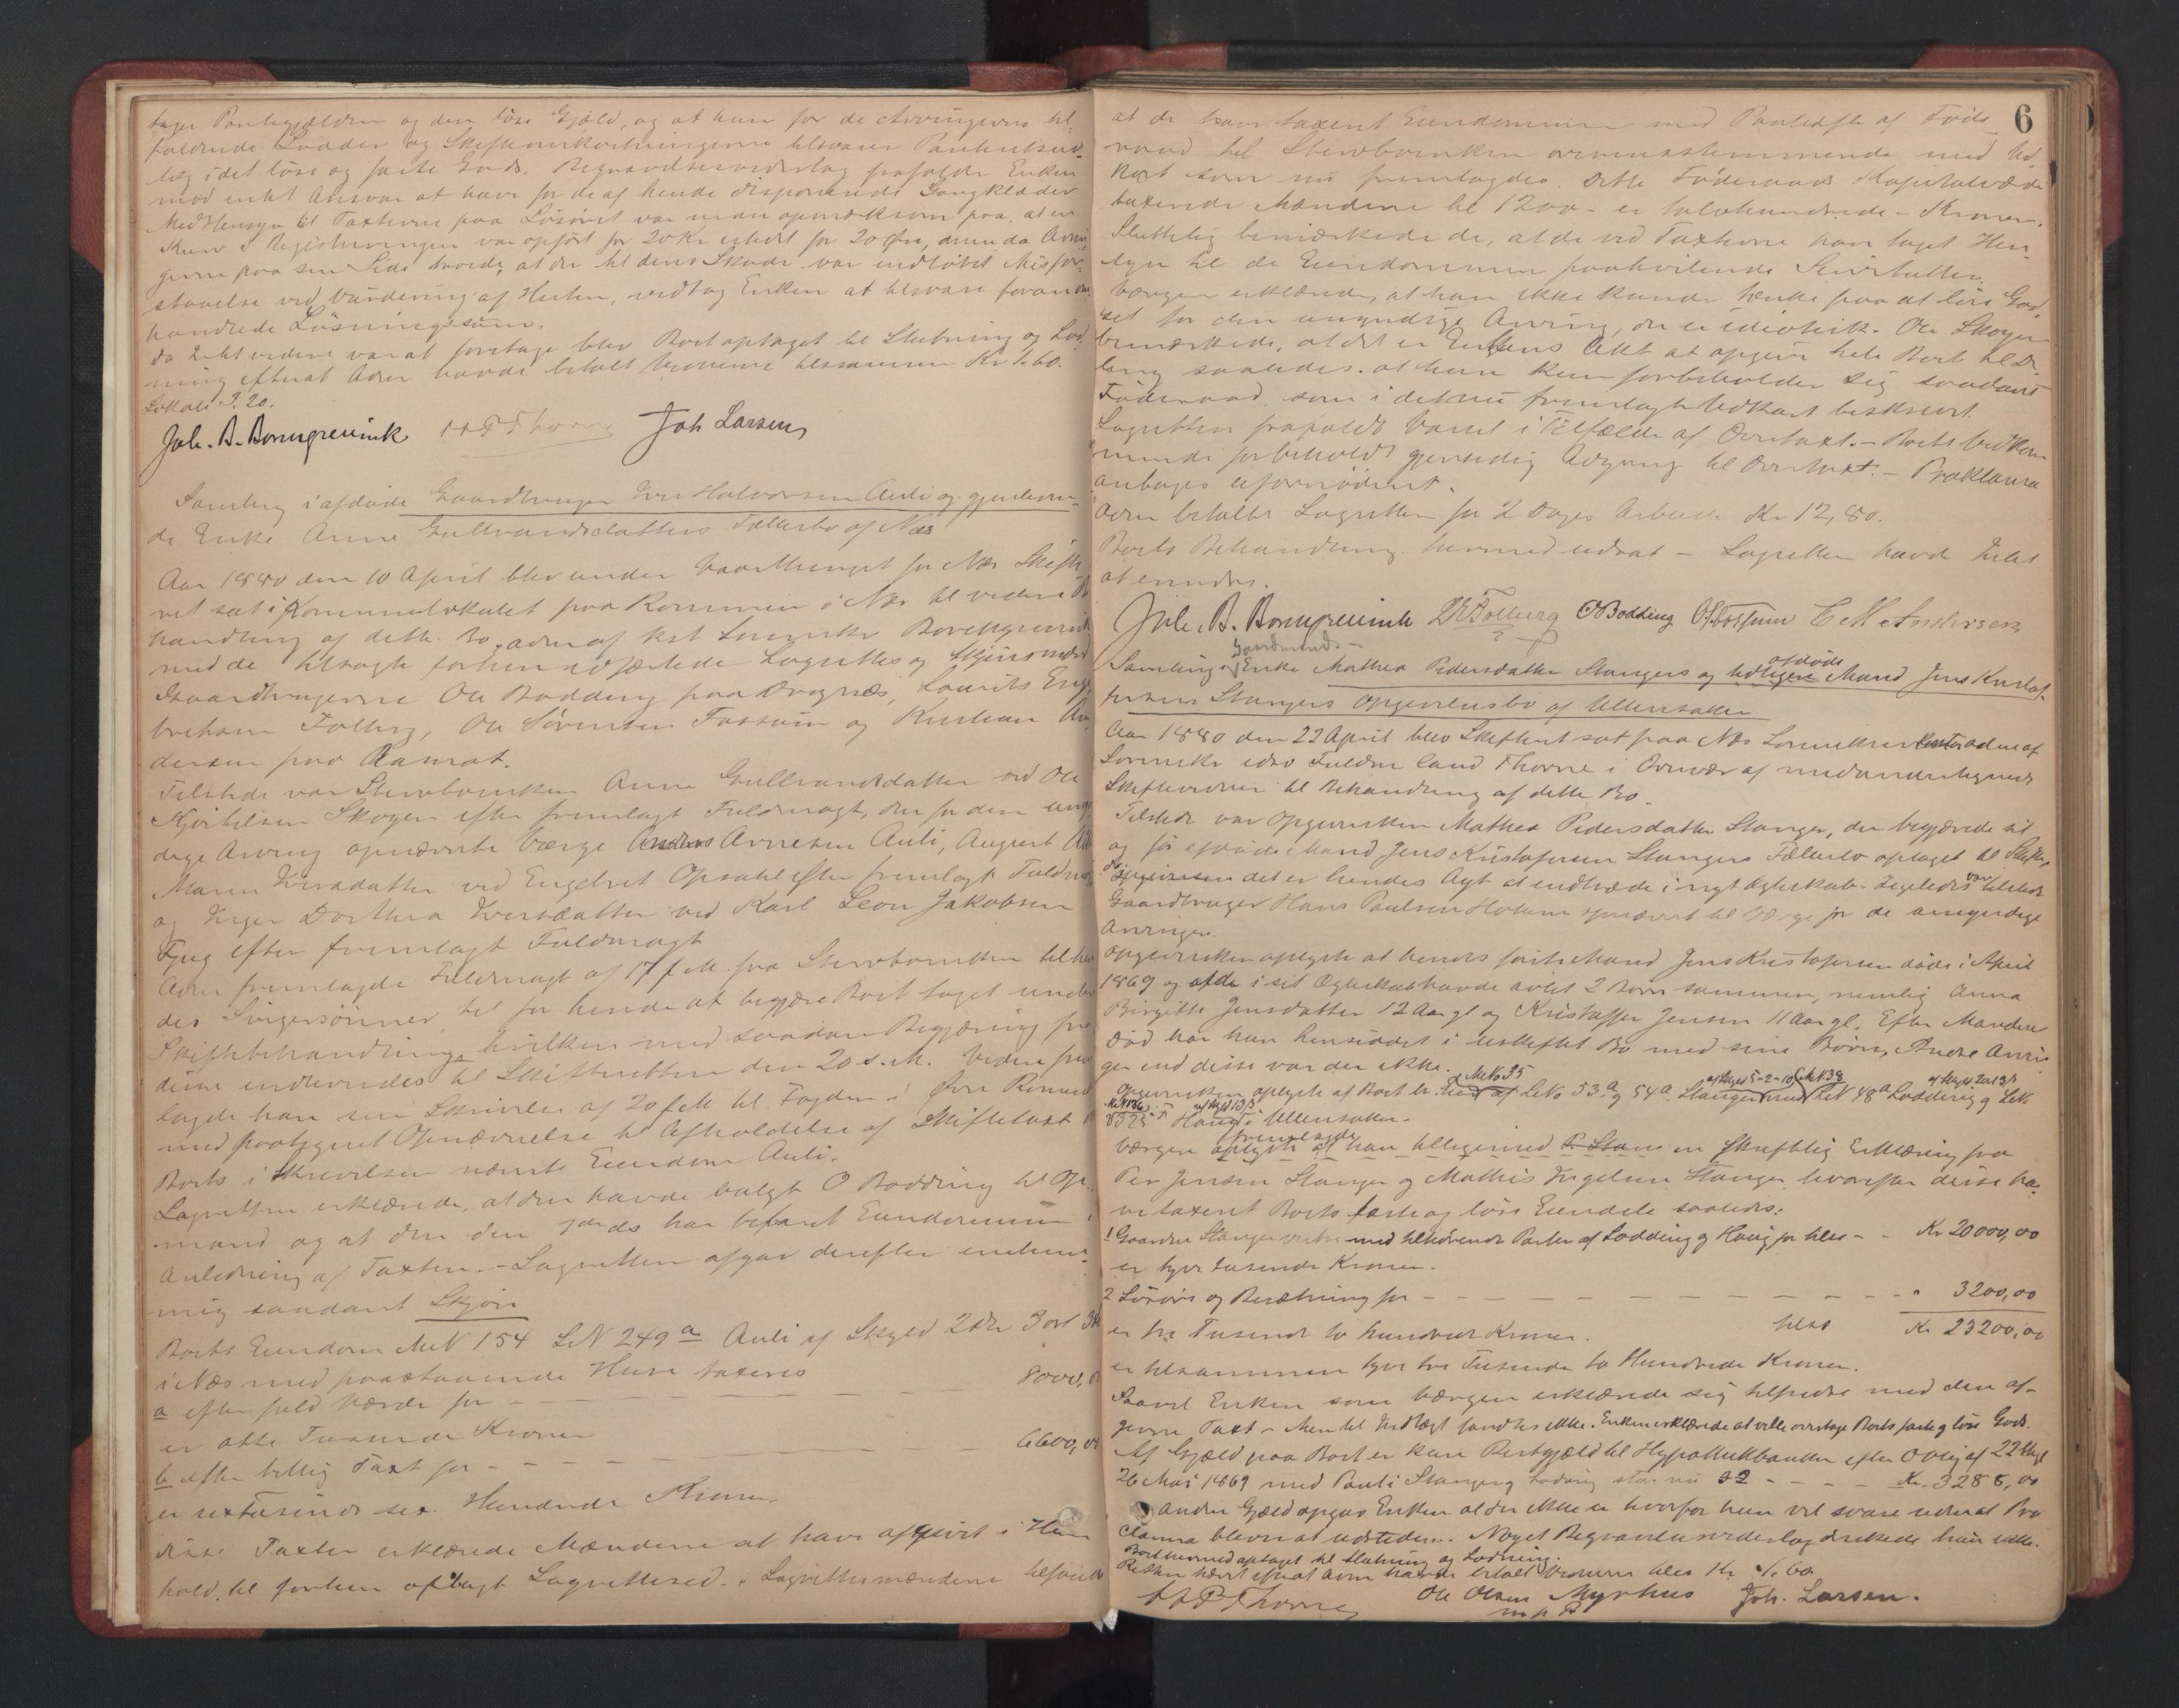 tager Pantegjælden og den løse Gjæld, og at hun for de Arvingerne til-
faldende Lodder og Skifteomkostningerne tilsvarer Panteudsl-
læg i det løse og faste Gods. Begravelsesvederlag frafaldt Enken
mod intet Ansvar at have for de af hende disponerede Gangklæder
Med Hensyn til Taxterne paa Løsøret var man opmærksom paa, at en
Kurv i Registreringen var opført for 20 Kr istedet for 20 Øre, men da Arvin-
gerne paa sin Side troede, at der til deres Skade var indløbet Misfor-
staaelse ved Vurdering af Hesten, vedtog Enken at tilsvare foran om-
handlede Løsningssum.
Da Intet videre var at foretage blev Boet optaget til Slutning og Lod-
ning efterat Adm havde betalt Vidnerne tilsammen Kr 1.60.
Lokale 3.20.
Joh. B. Borchgrevink Joh Larsen,
Samling i afdøde Gaardbruger Iver Halvorsen Auli og gjenleven-
de Enke Anne Gullvandsdatters Fællesbo af Næs
Aar 1880 den 10 April blev under Vaarthinget for Næs Skifte-
ret sat i Kommunelokalet paa Rommen i Næs til videre Be
handling af dette Bo, adm af kst Sorenskr Borchgrevink
med de tilsagte forhen edfæstede Lagrettes og Skjønsmænd
Gaardbrugerne Ole Bodding paa Dragnæs, Laurits Eng
brethsen Folberg, Ole Sørensen Fossum og Kristian An
dersen paa Aamot.
Tilstede var Stervboenken Anne Gullvandsdatter ved Ole
Kjøstelsen Skogen efter fremlagt Fuldmagt, den for den umyn
dige Arving opnævnte Værge Anders Arnesen Auli, August
Maren Iversdatter ved Engebret Opsahl efter fremlagt Fuldm
og Inger Dorthea Iversdatter ved Karl Leon Jakobsen
efter fremlagt Fuldmagt
Adm fremlagde Fuldmagt af 17 f. M. fra Stervboenken til hen
des Svigersønner, til for hende at begjære Boet taget under
Skiftebehandling, hvilken med saadan Begjæring fra
disse indleveredes til Skifteretten den 20 s. M. Videre frem
lagde han sin Skrivelse af 20 f M til Fogden i Øvre Romerike
med paategnet Opnævnelse til Afholdelse af Skiftetaxt
Boets i Skrivelsen nævnte Eiendom Auli.
Lagretten erklærede, at den havde valgt O Bodding til Op-
mand og at den den ds har befaret Eiendommen i
Anledning af Taxten. – Lagretten afgav derefter enstem-
mig saadant Skjøn
Boets Eiendom MN 154 LN 249 a Auli af Skyld 2 Dlr 3 ort
i Næs med paastaaende Huse taxeres
a efter fuld Værdi for – – – – – – 8000,
er otte Tusinde Kroner
b efter billig Taxt for – – – – – – 6600,00
er sextusinde sex Hundrede Kroner
disse Taxter erklærede Mændene at have afgivet i Hen
hold til forhen aflagt Lagrettesed. Lagrettesmændene tilføiede
6
at de have taxeret Eiendommen med Panteheftelse af Føde-
raad til Stervboenken overensstemmende med Ud-
kast som nu fremlagdes dette Føderaads Kapitalværdi
taxerede Mændene til 1200 – er tolvhundrede – Kroner.
Slutteligt bemærkede de, at de ved Taxterne have taget Hen
syn til de Eiendommen paahvilende Servitutter.
Værgen erklærede, at han ikke kunde tænke paa at løse God
set for den umyndige Arving, der er idiotisk. Ole Skogen
bemærkede, at det er Enkens Agt at opgive hele Boet til De-
ling saaledes at hun kun forbeholder sig saadant
Føderaad, som i det nu fremlagte Udkast beskrevet.
Lagretten frafaldt Varsel i Tilfælde af Overtaxt. – Boets Vedkom
mende forbeholdt gjensidig Adgang til Overtaxt. – Proklama
antages ufornødent.
Adm betalte Lagretten for 2 Dages Arbeide Kr 12,80.
Boets Behandling hermed udsat – Lagretten havde Intet
at erindre.
Joh. B. Borchgrevink Folberg OBodding OSFossum C M Andersen
Gaardmands-
Samling i Enke Mathea Pedersdatter Stangers og afdøde Mand Jens Kristof-
fersen Stangers Opgivelsesbo af Ullensaker
Aar 1880 den 22 April blev Skifteret sat paa Næs Sorenskriverkontor adm af
Sorenskr edsv Fuldm cand Thorne i Overvær af medundertegnede
Skiftevidner til Behandling af dette Bo.
Tilstede var Opgiversken Mathea Pedersdatter Stanger, der begjærede sit
og før afdøde Mand Jens Kristofersen Stangers Fællesbo optaget til Skifte,
det er hendes Agt at indtræde i nyt Ægteskab. Ligeledes var tilstede
Gaardbruger Hans Paulsen Holum opnævnt til Værge for de umyndige
Arvinger.
Opgiversken oplyste at hendes første Mand Jens Kristofersen døde i April
1869 og at de i sit Ægteskab havde avlet 2 Børn sammen, nemlig Anna
Birgitte Jensdatter 12 Aar gl og Kristoffer Jensen 11 Aar gl. Efter Mandens
Død har hun hensiddet i uskiftet Bo med sine Børn, Andre Arvin-
ger end disse var der ikke.
MNo 35 af Skyld 5-2-10 MN 38 af Skyld 2 ort 3 ß
Opgiversken oplyste at Boet er Eier af LNo 53 a og 54 a Stanger LN 48 a Lodding og LN
Haug i Ullensaker.
fremlagde
Værgen oplyste at han tilligemed P. Stan en skriftlig Erklæring fra
Per Jensen Stanger og Mathis Ingelsen Stanger, hvorefter disse ha-
ve taxeret Boets faste og løse Eiendele saaledes:
1 Gaarden Stanger vestre med tilhørende Parter af Lodding og Haug for tils – – Kr 20000,00
er tyve tusende Kroner.
2 Løsøre og Besætning for – – – – – – – – – – " 3200,00
er tre Tusende to hundrede Kroner. tils Kr 23200,00
er tilsammen tyve tre Tusinde to Hundrede Kroner.
Saavel Enken som Værgen erklærede sig tilfreds med den af-
givne Taxt – Men til Indlægt fandtes ikke. Enken erklærede at ville overtage Boets faste og løse Gods.
Af Gjæld paa Boet er kun Restgjæld til Hypothekbanken efter Oblig af 22 thgl
26 Mai 1869 med Pant i Stanger og Lodding stor nu – – – Kr. 3288,00
anden Gjæld opgav Enken at der ikke er hvorfor hun vil svare uden at Pro
clama blever at udstede. Noget Begravelsesvederlag ønskede hun ikke.
Boet hermed optaget til Slutning og Lodning.
Retten hævet efterat Adm havde betalt Vidnerne tils Kr 1.60
Thorne Ole Olsen Myrhus Joh. Larsen.
m p P